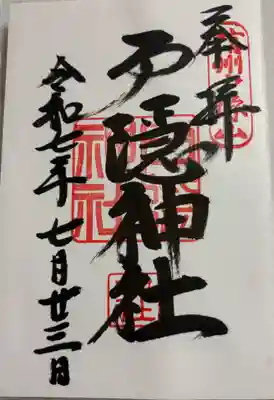 奉拝
戸隠神社
令和七年七月廿三日